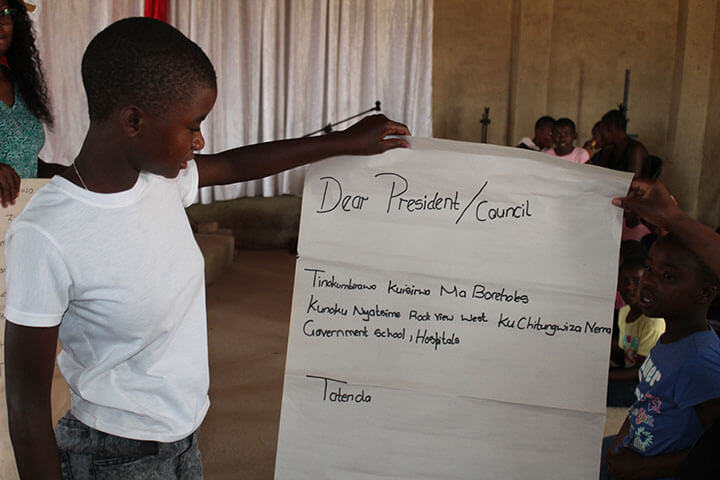 Dear President/Council
Tinokumbirawo Kuisirwo Ma Boreholes
Kunoku Nyatsime Rock View West Ku Chitungwiza Nema
Government school, Hospitals
Tatenda